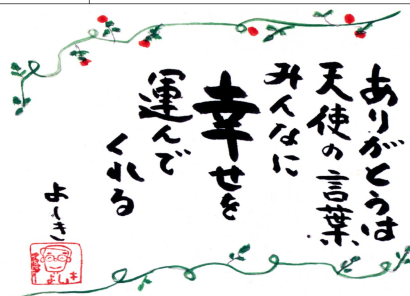 ありがとうは
天使の言葉
みんなに
幸せを
運んで
くれる
よしき
よしき